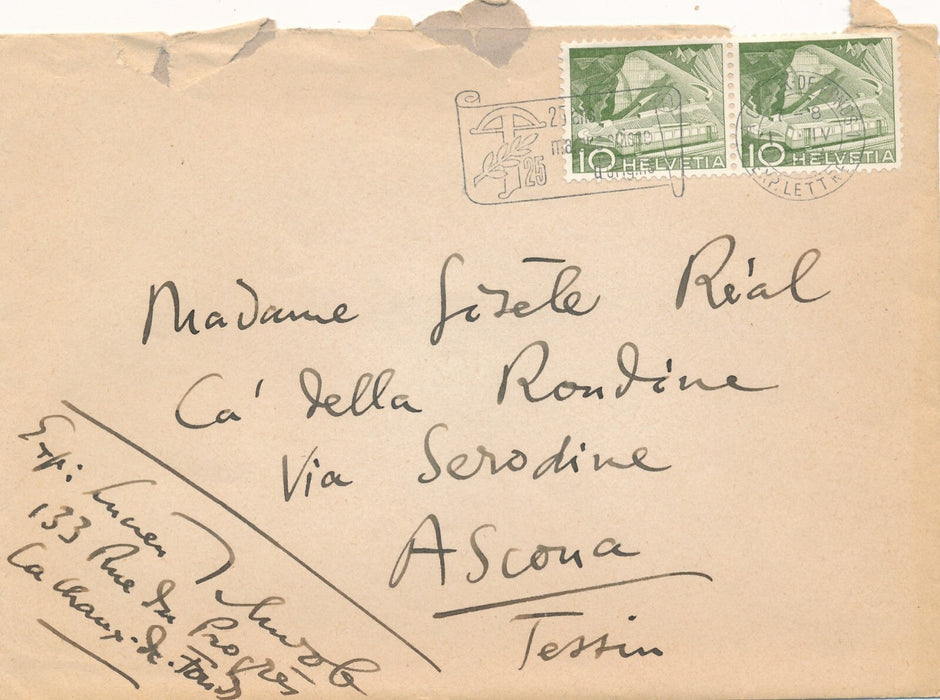 10 HELVETIA 10 HELVETIA
25
EXP. LETTRES
Madame Gisèle Réal
Ca' della Rondine
Via Serodine
Ascona
Tessin
Exp: Lucien
133 Rue du Progrès
La Chaux-de-Fonds